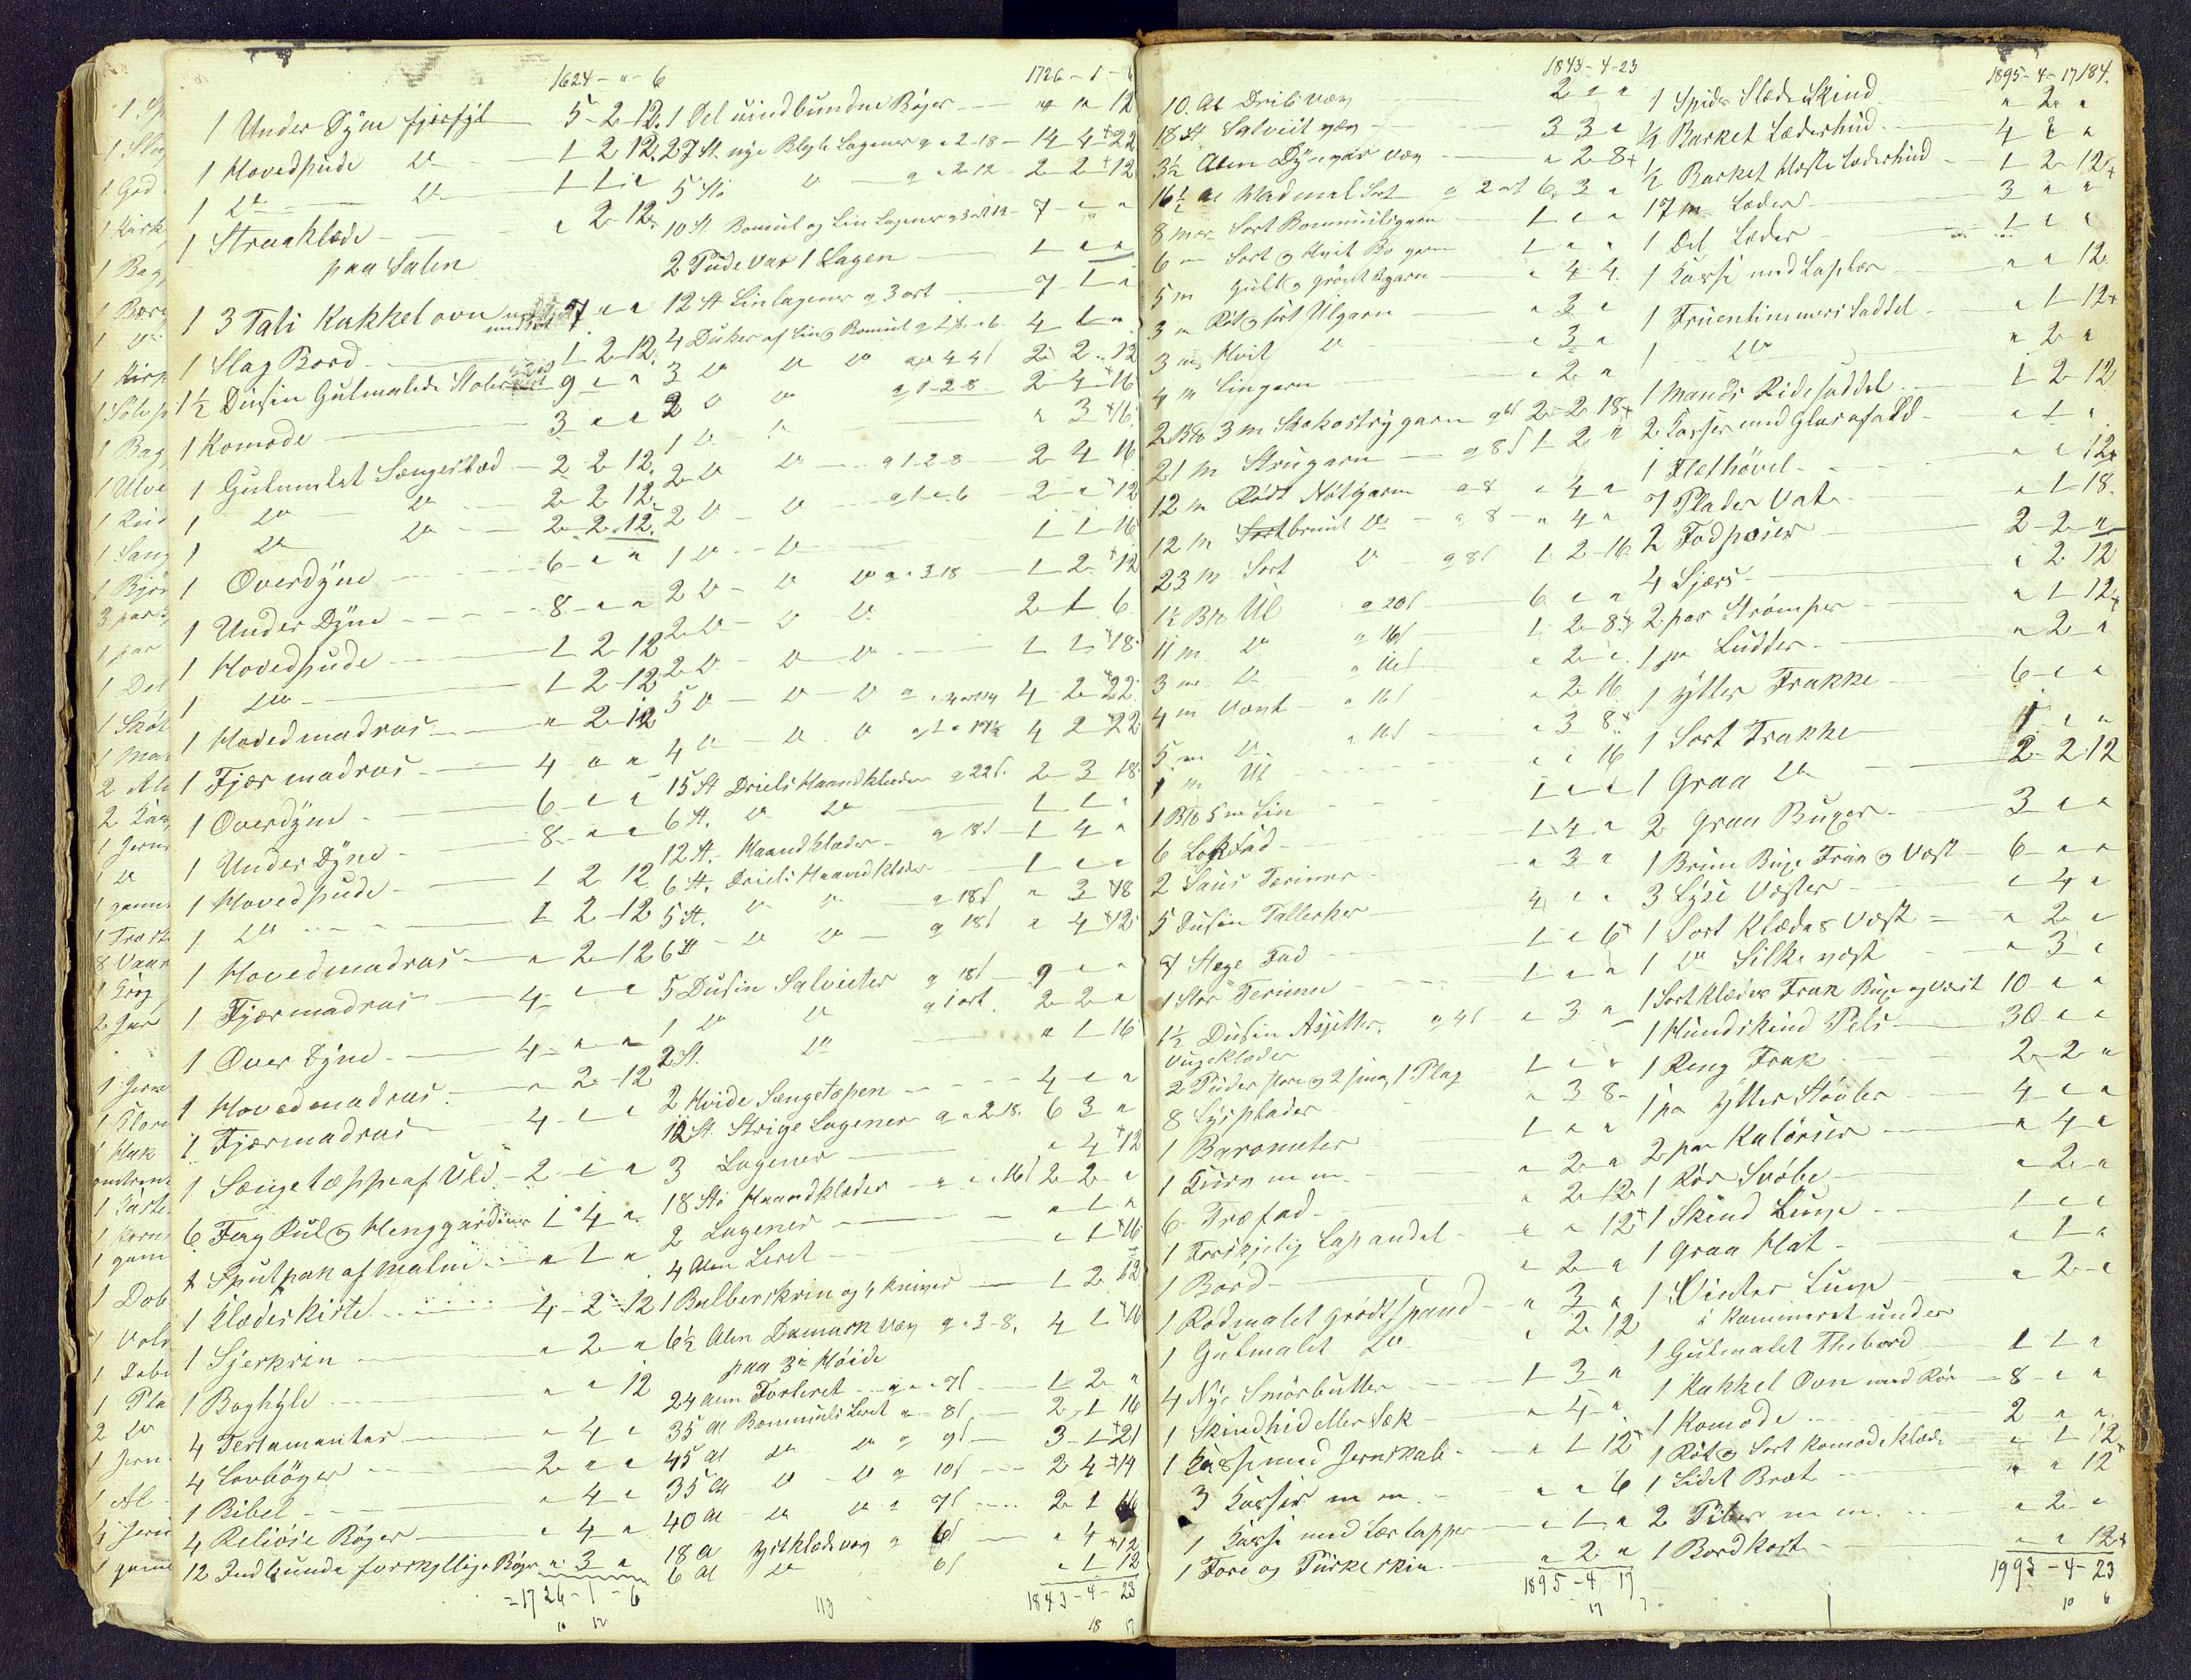 1624 - " - 6
1 Under Dÿne fjerfÿl 5 - 2 - 12.
1 Hovedpude Do 1 2 12.
1 Do Do 1 1 "
1 Straaklæde " 2 12.
paa Salen
1 3 Tals Kakkelovn 7 " "
1 Slag Bord 1 2 12.
1½ Dusin Gulmalede Stoler 9 " "
1 Komode 3 " "
1 Gulmalet Sængested 2 2 12.
1 Do Do 2 2 12.
1 Do Do 2 2 12.
1 Overdÿne 6 " "
1 Under Dÿne 8 " "
1 Hovedpude 1 2 12
1 Do 1 2 12
1 Hovedmadras " 2 12
1 Fjær madras 4 " "
1 Overdÿne 6 " "
1 Under Dÿne 8 " "
1 Hovedpude 1 2 12
1 Do 1 2 12
1 Hovedmadras " 2 12
1 Fjærmadras 4 " "
1 Over Dÿne 4 " "
1 Hovedmadras " 2 12
1 Fjærmadras 4 " "
1 Sængetæppe af Uld 2 " "
6 Fag Rul og Henggardiner 1 4 "
1 Sputpak af Malm " 1 "
1 Klædeskiste 4 2 12
1 Sÿerkrin " 2 "
1 Boghÿle " " 12
4 Testamenter " 4 "
4 Lovbøger 2 " "
1 Bibel " 4 "
4 Reliøse Bøger " 4 "
12 Indbunde forskjellige Bøger " 3 "
= 1726 - 1 - 6
1726 - 1 - 6
1 Del uindbundne Bøger " " 12
27 St. nye Blegte Lagener a " 2 - 18 14 4 22
5 St Do a " 2 12 2 2 12
10 St Bomul og Lin Lagener 7 " "
2 Pude var 1 Lagen 1 " "
12 St Linlagener a 3 ort 7 1 "
4 Duker af Lin og Bomul 4 1 "
3 Do Do Do 2 2 12
2 Do Do a 1 - 2 - 8 2 4 16
1 Do " " 3 16
2 Do Do a 1 - 2 - 8 2 4 16
2 Do Do a 1 " 6 2 " 12
1 Do Do 1 1 16
2 Do Do Do a " 3 18 1 2 12
2 Do Do Do 2 1 6
2 Do Do Do 1 1 18
5 Do Do Do 4 2 22
4 Do Do Do 4 2 22
15 St Dreils Haandklæder a 22 s. 2 3 18
6 St. Do Do 1 1 "
12 St. Haandklæder a 18 s 1 4 "
6 St. Dreils Haandklæder 1 " "
5 St. Do Do a 18 s " 3 18
6 St Do Do a 18 s " 4 12
5 Dusin Salvieter a 18 s 9 " "
1 Do Do a 1 ort 2 2 "
2 St. Do " 1 16
2 Hvide Sængetæpen 4 " "
12 St. Strige Lagener a " 2 18. 6 3 "
3 Lagener " 4 12
18 St Haandklæder a " 16 s 2 2 "
2 Lagener " 1 "
4 Alen Leret " 1 16
1 Balberskrin og 4 Kniver 1 2 12
6½ Alen Damask væv a " 3 - 8. 4 1 16
paa 3de Høide
24 Alen Forleret a " 7 s 1 2 "
35 Al Bommuls Leret a " 8 s 2 1 16
45 Al Do Do a 9 s 3 1 21
35 Al Do Do a 10 s 2 4 14
40 Al Do Do a 7 s 2 1 16
18 a a 6 s " 4 12
6 Al Do 6 s " 1 12
1843 - 4 - 23
113
1843 - 4 - 23
10. Al Dreils væv 2 " "
18 St Salveit væv 3 3 "
3½ Alen Dÿnevar væv " 2 8
16½ Al Vadmal Sort a 2 ort 6. 3 "
8 mer Sort Bommulsgarn 1 " "
6 m Sort og Hvit Bo garn 1 " "
5 m Gult og grønt garn " 4 4.
3 m Røt og sort Ulgarn " 3 "
3 m Hvit Do " 3 "
4 m Lingarn " 2 "
2 B℔ 3 m Stokastrygarn 2 - 2 18
21 m Strugarn a 8 s 1 2 "
12 m Rødt Nøtgarn a 8 " 4 "
12 m Sortbrunt Do a 8 " 4 "
23 m Sort Do a 8 s 1 2 16
1½ B℔ Ul a 20 s 6 " "
11 m Do a 16 s 1 2 8
3 m Do a 16 s " 2 "
4 m Vant a 16 s " 2 16
5 m Do a 16 s " 3 8
1 m Ul " " 16
1 B℔ 5 m Lin 1 " "
6 Lokfad 1 4 "
2 Saus Teriner " 3 "
5 Dusin Tallerker 4 " "
7 Stege Fad 1 " 6
1 Stor Terinne 1 " "
1½ Dusin Asjetter. a 4 s " 3 "
Vugeklæder
2 Puder store og 2 smaa 1 Plag 1 " "
8 Lysplader " 3 8
1 Barometer 1 " "
1 Kurv m m. " 2 "
6 Træfad " 2 12
1 Forskjelig Lapandel " " 12
1 Bord " 2 "
1 Rødmalet grødtspand " 3 "
1 Gulmalet Do " 2 12
4 Nÿe Smørbutter 1 3 "
1 Skindhid eller Sæk " 4 "
1 Kasse med Jernskab " 1 12
3 Kasser m m. " " 6
1 Kasse med Lærlapper " 1 "
1 Fore og Turkeskin " 2 "
1895 - 4 - 17
1895 - 4 - 17 184.
1 Spids Slæde Skind " 2 "
¼ Barket Læderhud 4 2 "
½ Barket Hæste Læderhud 1 2 12
17 m Læder 3 " "
1 Del Læder 1 " "
1 Kasse med Laplær " " 12
1 Fruentimmers Saddel " 1 12
1 Do " 2 "
1 Mands Ridesaddel 1 2 12
2 Kasser med Glarafald " 1 "
1 Flethøvel " " 12
7 Plader Vat " 1 18.
2 Fodposer 2 - 2 "
4 Sjærs " 2 12
2 par Strømper " 1 12
1 pr Ludder " 2 "
1 ÿtter Frakke 6 " "
1 Sort Frakke 1 " "
1 Graa Do 2 2 12
2 Graa Buxer 3 " "
1 Brun Buxe Frak og Væst 6 " "
3 Lyse Væster " 4 "
1 Sort Klædes Væst " 2 "
1 Do Silke væst " 3 "
1 Sort Klædes Frak Buxe og væst 10 " "
1 Hundskind Pels 30 " "
1 Reng Frak 2 2 "
1 pr ÿtter Støvler 4 " "
2 par Kalosser " 4 "
1 Rør Svøbe " 2 "
1 Skind Lue 1 " "
1 Graa Hat " 1 "
1 Vinter Lue " 2 "
i Kammeret under
1 Gulmalet Thebord 1 1 "
1 Kakkel Ovn med Rør 8 " "
1 Komode 2 " "
1 Røt og Sort Komodeklæde " 1 12
1 Lidet Bræt " " 12
2 Piber m m. " 2 "
1 Bordkost " " 12
1993 - 4 - 23